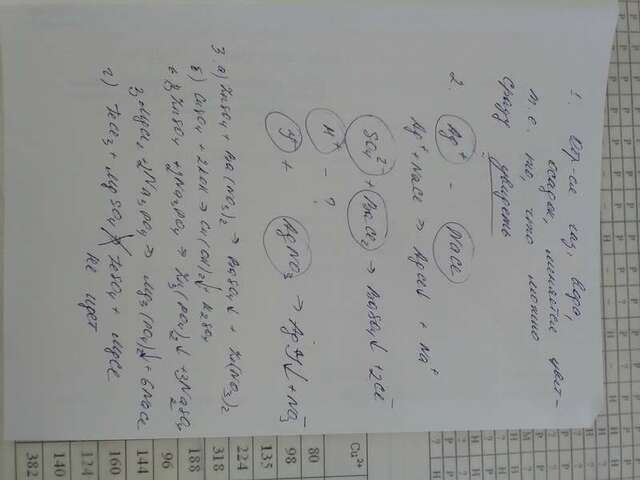 1. Обр-ся газ, вода,
осадок, меняется цвет –
т.е. то, что можно
сразу увидеть
2. Ag⁺ – NaCl
Ag⁺ + NaCl → AgCl↓ + Na⁺
SO₄²⁻ + BaCl₂ → BaSO₄↓ + 2Cl⁻
H⁺ – ?
J⁻ + AgNO₃ → AgJ↓ + NO₃⁻
3. а) ZnSO₄ + Ba(NO₃)₂ → BaSO₄↓ + Zn(NO₃)₂
б) CuSO₄ + 2KOH → Cu(OH)₂↓ K₂SO₄
в 3ZnSO₄ + 2Na₃PO₄ → Zn₃(PO₄)₂↓ + 3Na₂SO₄
3MgCl₂ + 2Na₃PO₄ → Mg₃(PO₄)₂↓ + 6NaCl
г) FeCl₃ + MgSO₄ FeSO₄ + MgCl
не идет
Cu²⁺
80
98
135
224
318
188
96
144
160
124
140
382